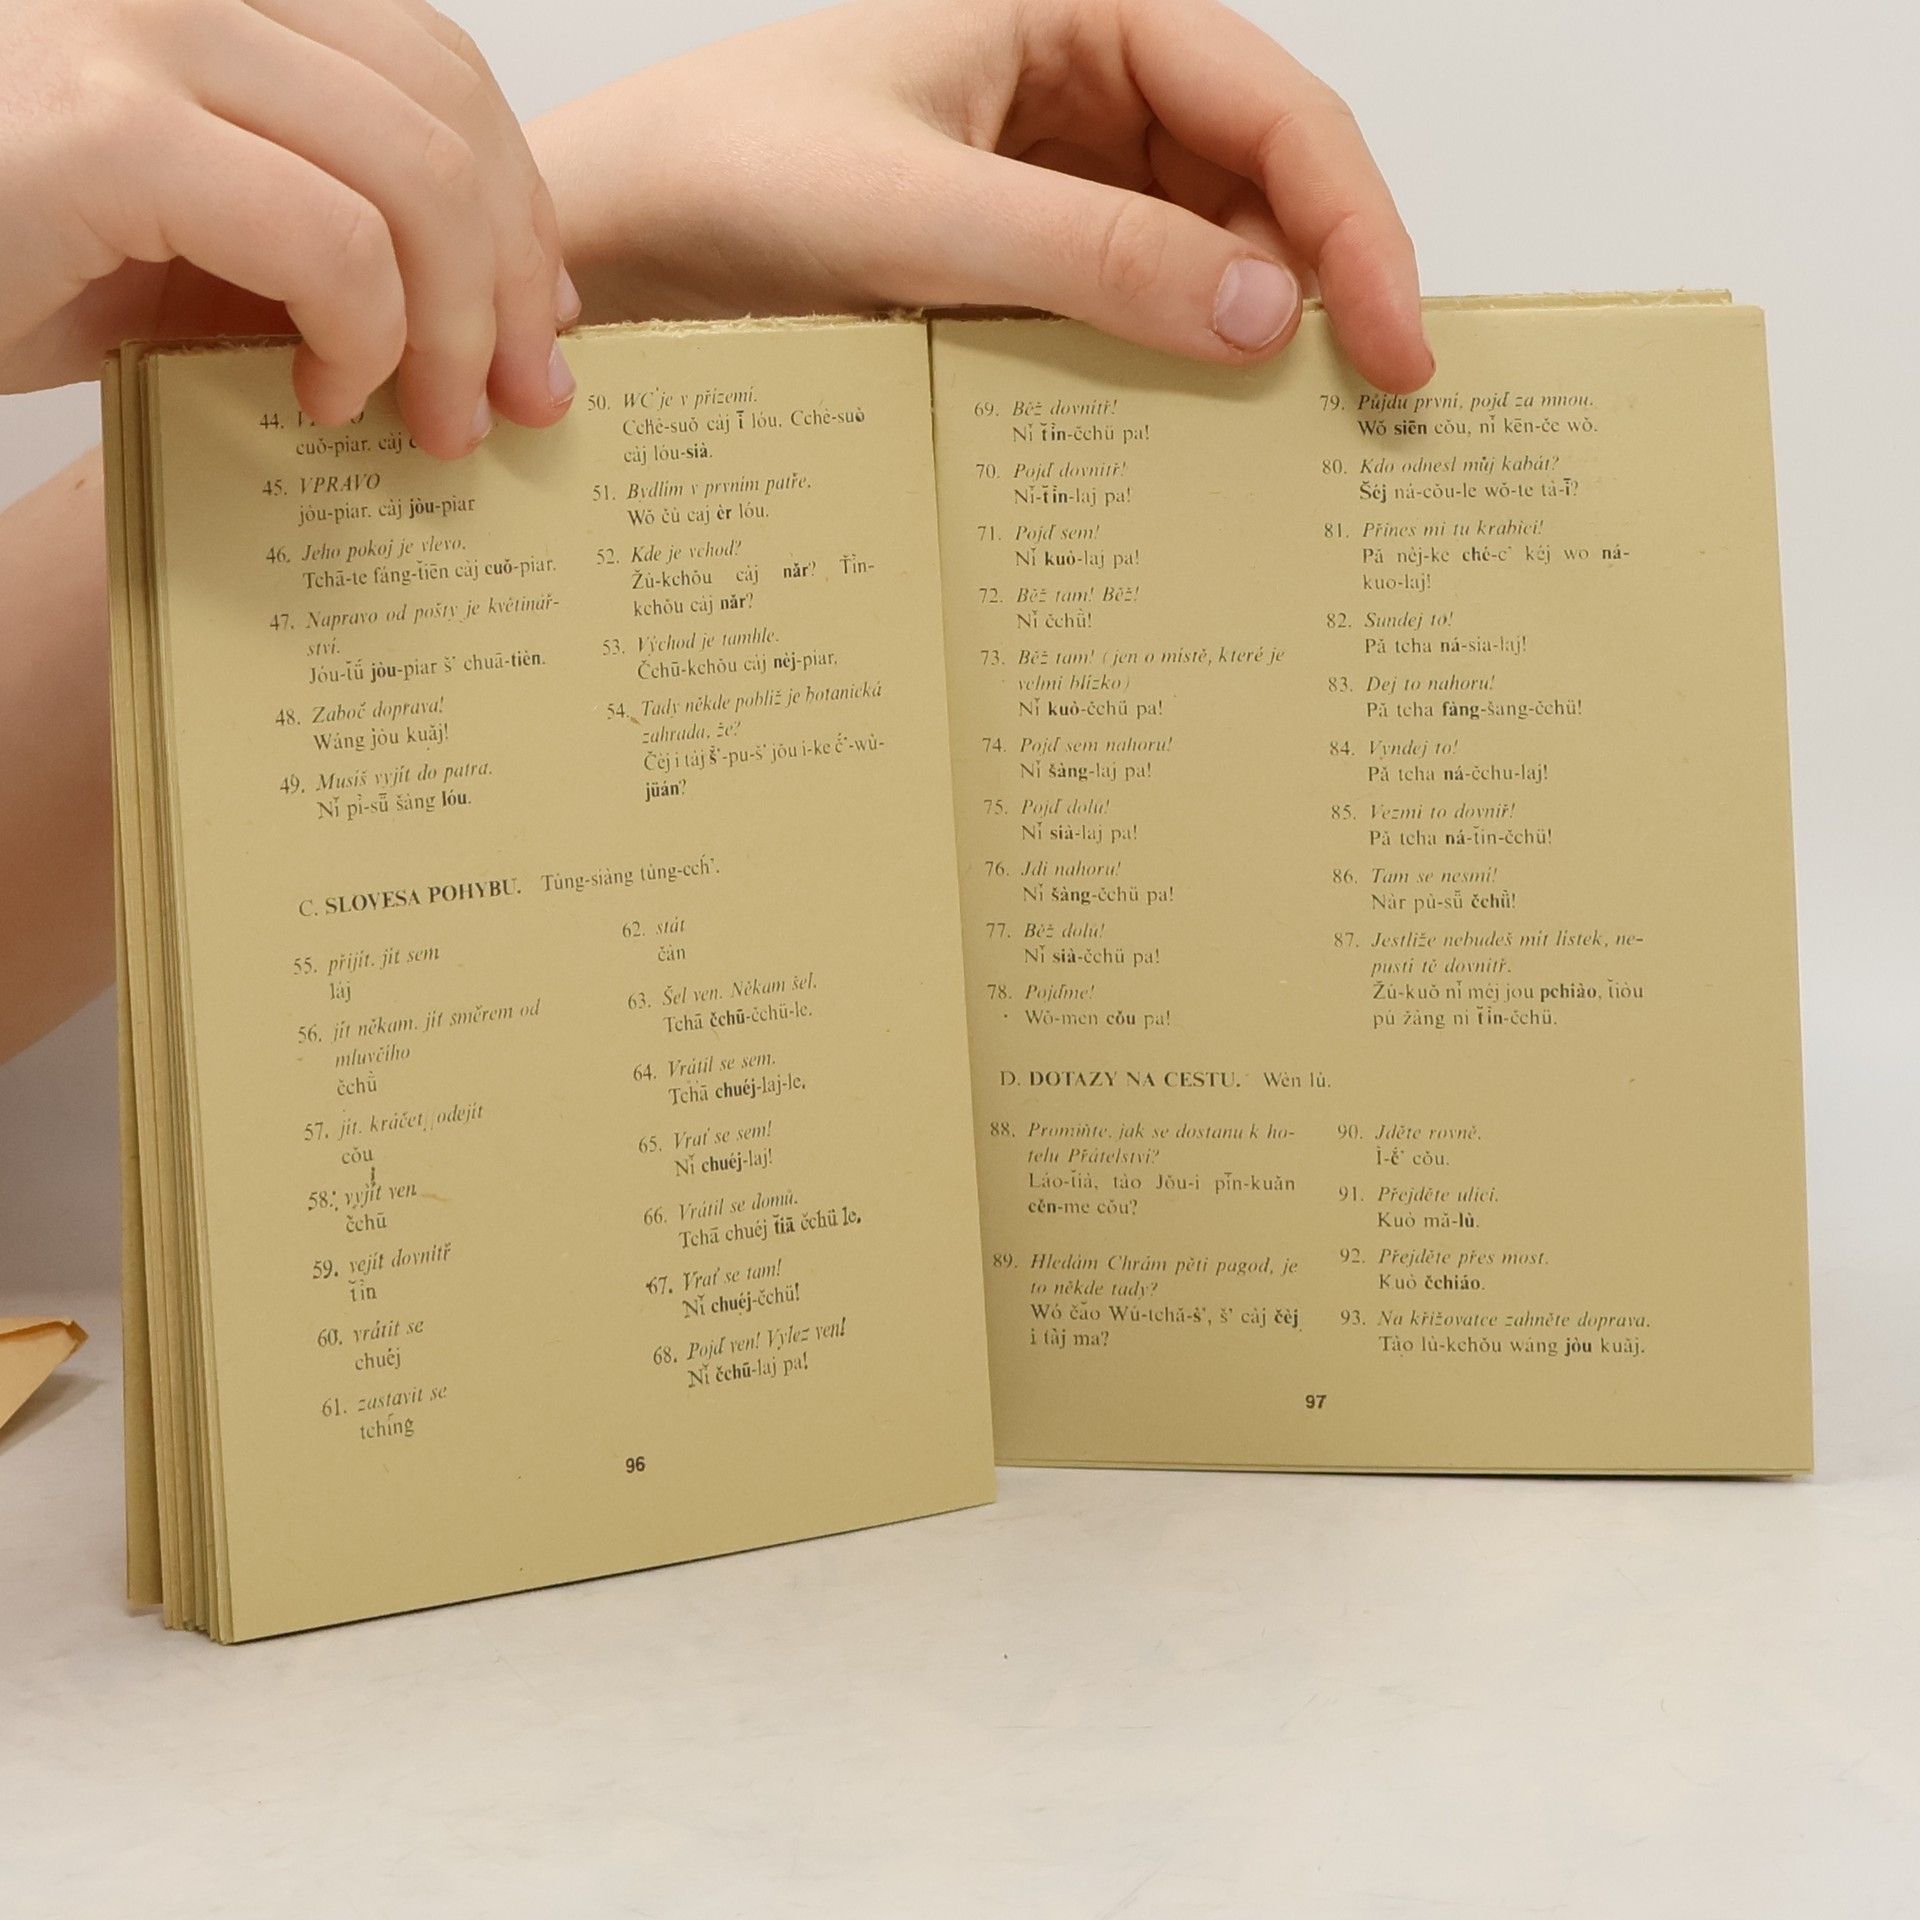 44.
cuǒ-piar. càj
45. VPRAVO
jòu-piar. càj jòu-piar
46. Jeho pokoj je vlevo.
Tchā-te fáng-ťiēn càj cuǒ-piar.
47. Napravo od pošty je květinář-
ství.
Jóu-ťǘ jòu-piar š’ chuā-tièn.
48. Zaboč doprava!
Wáng jòu kuǎj!
49. Musíš vyjít do patra.
Nǐ pì-sǖ šàng lóu.
50. WC je v přízemí.
Cchè-suǒ càj ī lóu. Cchè-suǒ
càj lóu-sià.
51. Bydlím v prvním patře.
Wǒ čù caj èr lóu.
52. Kde je vchod?
Žù-kchǒu càj nǎr? Ťìn-
kchǒu càj nǎr?
53. Východ je tamhle.
Čchū-kchǒu càj nèj-piar.
54. Tady někde poblíž je botanická
zahrada, že?
Čèj i tàj š’-pu-š’ jǒu i-ke č’-wù-
jüán?
C. SLOVESA POHYBU. Tùng-siàng tùng-cch’.
55. přijít. jít sem
láj
56. jít někam. jít směrem od
mluvčího
čchǜ
57. jít. kráčet, odejít
cǒu
58. vyjít ven
čchū
59. vejít dovnitř
ťìn
60. vrátit se
chuéj
61. zastavit se
tchíng
62. stát
čàn
63. Šel ven. Někam šel.
Tchā čchū-čchü-le.
64. Vrátil se sem.
Tchā chuéj-laj-le.
65. Vrať se sem!
Nǐ chuéj-laj!
66. Vrátil se domů.
Tchā chuéj ťiā čchü le.
67. Vrať se tam!
Nǐ chuéj-čchü!
68. Pojď ven! Vylez ven!
Nǐ čchū-laj pa!
96
69. Běž dovnitř!
Nǐ ťìn-čchü pa!
70. Pojď dovnitř!
Nǐ-ťìn-laj pa!
71. Pojď sem!
Nǐ kuò-laj pa!
72. Běž tam! Běž!
Nǐ čchǜ!
73. Běž tam! (jen o místě, které je
velmi blízko)
Nǐ kuò-čchü pa!
74. Pojď sem nahoru!
Nǐ šàng-laj pa!
75. Pojď dolu!
Nǐ sià-laj pa!
76. Jdi nahoru!
Nǐ šàng-čchü pa!
77. Běž dolu!
Nǐ sià-čchü pa!
78. Pojďme!
Wǒ-men cǒu pa!
79. Půjdu první, pojď za mnou.
Wǒ siēn cǒu, nǐ kēn-če wǒ.
80. Kdo odnesl můj kabát?
Šéj ná-cǒu-le wǒ-te tà-ī?
81. Přines mi tu krabici!
Pǎ nèj-ke ché-c’ kéj wo ná-
kuo-laj!
82. Sundej to!
Pǎ tcha ná-sia-laj!
83. Dej to nahoru!
Pǎ tcha fàng-šang-čchü!
84. Vyndej to!
Pǎ tcha ná-čchu-laj!
85. Vezmi to dovniř!
Pǎ tcha ná-ťin-čchü!
86. Tam se nesmí!
Nàr pù-sǖ čchǜ!
87. Jestliže nebudeš mít lístek, ne-
pustí tě dovnitř.
Žú-kuǒ nǐ méj jou pchiào, ťiòu
pú žàng ni ťìn-čchü.
D. DOTAZY NA CESTU. Wèn lù.
88. Promiňte, jak se dostanu k ho-
telu Přátelství?
Láo-ťià, tào Jǒu-i pīn-kuǎn
cěn-me cǒu?
89. Hledám Chrám pěti pagod, je
to někde tady?
Wó čǎo Wú-tchǎ-š’, š’ càj čèj
i tàj ma?
90. Jděte rovně.
Ì-č’ cǒu.
91. Přejděte ulici.
Kuò mǎ-lù.
92. Přejděte přes most.
Kuò čchiáo.
93. Na křižovatce zahněte doprava.
Tào lù-kchǒu wáng jòu kuǎj.
97